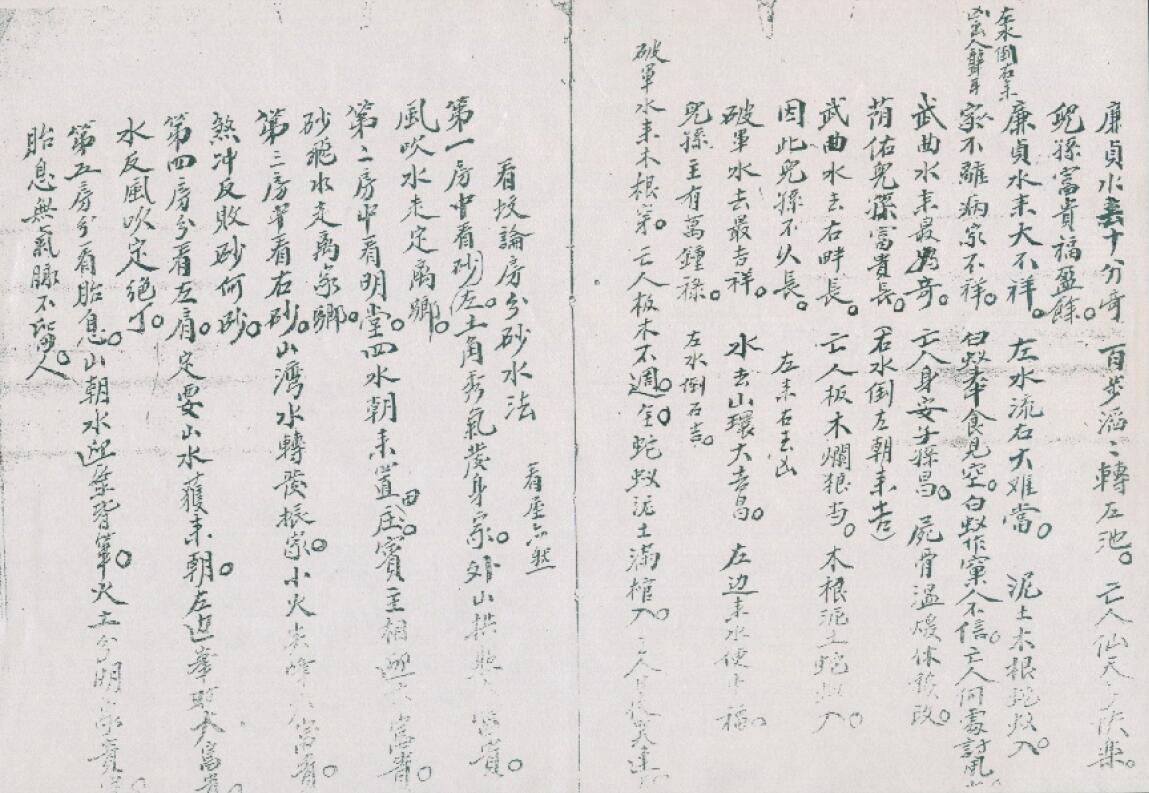 廉貞水去十分奇 百步滔々轉左池。亡人仙天多快樂。
兒孫富貴福盈餘。
廉貞水来大不祥。左水流右大难當。泥土木根蛇蚁入。
家不離病家不祥。白蚁牵食見空。白蚁作窠人不信。亡人何處討風
左水倒右来
凶 亡人聾耳
武曲水来最為奇。亡人身安子孫昌。屍骨温煖休移改。
荫佑兒孫富貴長。(右水倒左朝来吉)
武曲水去右畔長。亡人板木爛狼当。木根泥土蛇蚁入。
因此兒孫不久長。 左来右去凶
破軍水去最吉祥。水去山環大吉昌。左边来水使来福。
兒孫主有萬鍾祿。左水倒右吉。
破軍水来木根穿。亡人板木不週全。蛇蚁泥土滿棺入。
看坟論房分砂水法 看屋亦然
第一房中看砂左。土角秀氣發身家。外山拱照大富貴。
風吹水走定离鄉。
第二房中看明堂。四水朝来置田庄。賓主相迎 富貴。
砂飛水走离家鄉。
第三房中看右砂。山灣水轉發振家。小火尖峰 富貴。
煞冲反败砂何砂。
第四房分看左肩。定要山水獲来朝。左边峯照大富貴
水反風吹定绝丁。
第五房分看胎息。山朝水迎 筆。火土分明家富
胎息無氣脈不留人。